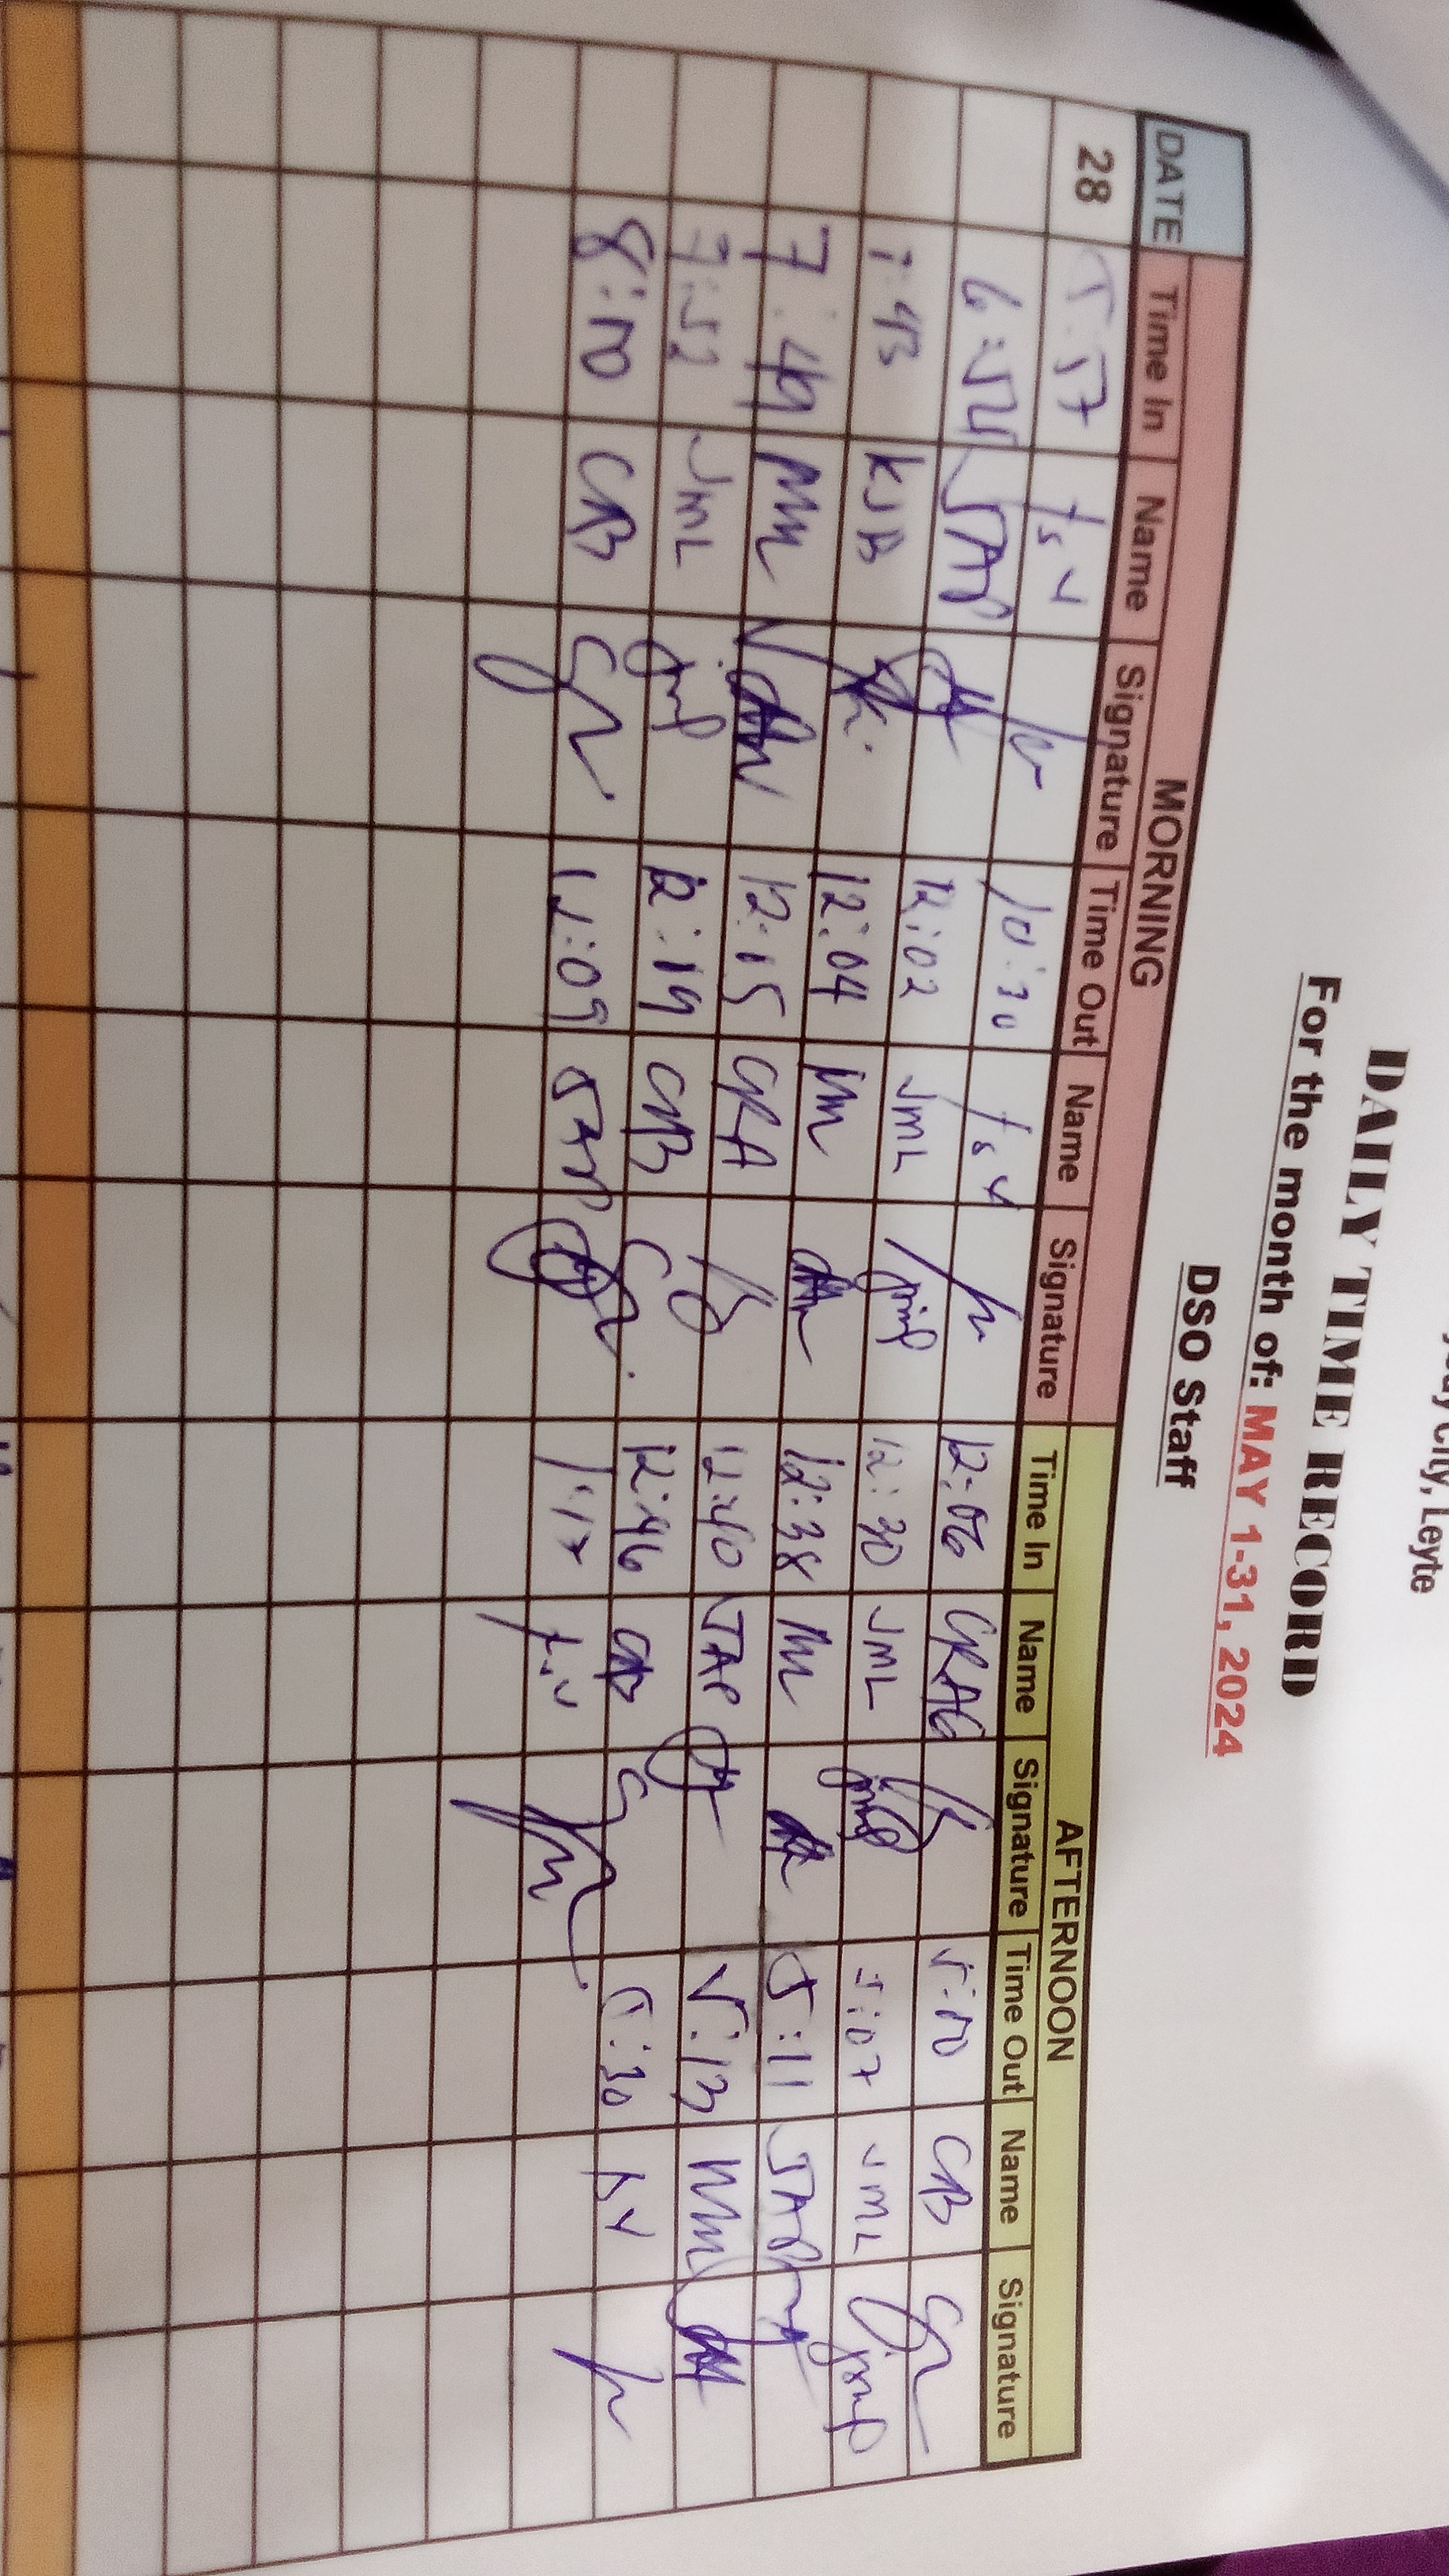 City, Leyte
DAILY TIME RECORD
For the month of: MAY 1-31, 2024
DSO Staff
DATE MORNING AFTERNOON
Time In Name Signature Time Out Name Signature Time In Name Signature Time Out Name Signature
28 5:57 10:30 12:06 GRAG 5:10 CB
6:54 JAP 12:02 JML 12:30 JML 5:07 JML
7:43 KJB 12:04 MM 12:38 MM 5:11 JAP
7:49 MM 12:15 GRA 12:40 JAP 5:13 MM
7:52 JML 12:19 CB 12:46 CB 5:30
8:10 CB 12:09 JAP 1:17